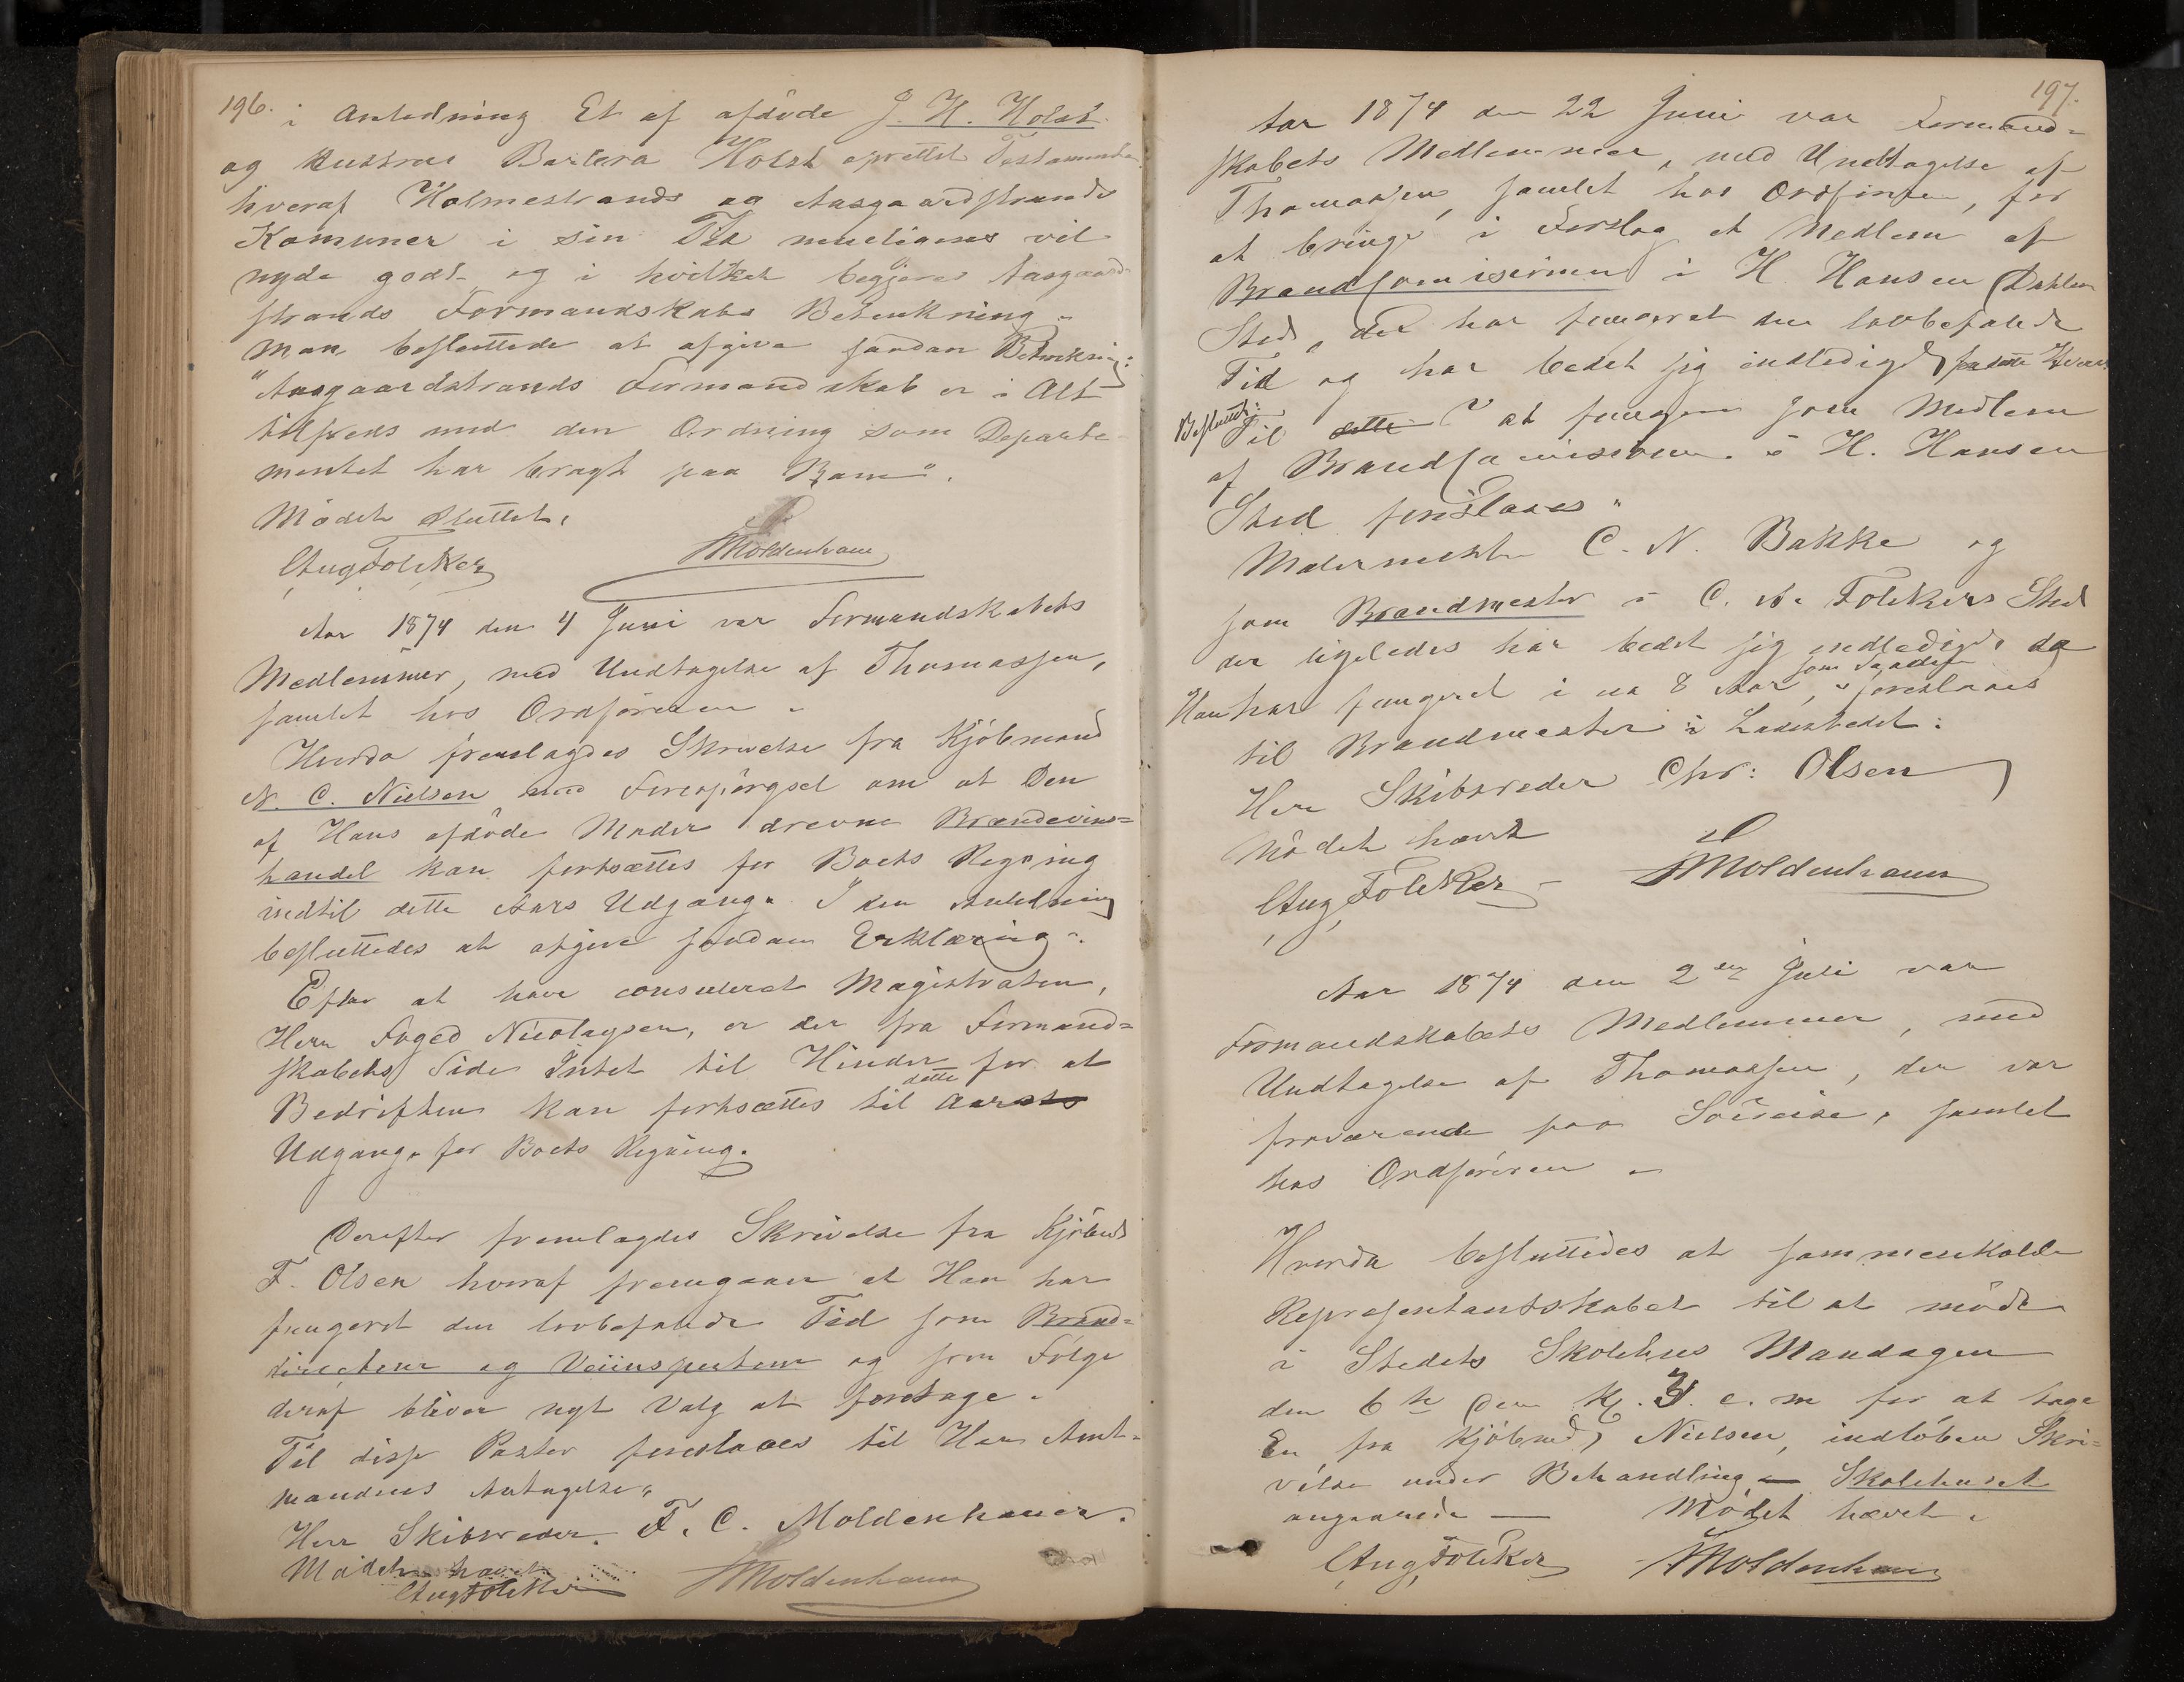 196.
i Anledning Et af afdöde J. H. Holst
og Hustrue Barbra Holst oprettet Testamente
hveraf Holmestrands og Aasgaardstrands
Komuner i sin Tid mueligens vil
nyde godt og i hvilket begjæres Aasgaard-
strands Formandskabs Betenkning.
Man besluttede at afgive saadan Betenkning:
"Aasgaardstrands Formandskab er i Alt
tilfreds med den Ordning som Departe-
mentet har bragt paa Bane".
Mödet sluttet.
Aug Folcker Moldenhauer
Aar 1874 den 4 Juni var Formandskabets
Medlemmer, med Undtagelse af Thomassen,
samlet hos Ordföreren.
Hvorda fremlagdes Skrivelse fra Kjöbmand
N. C. Nielsen med Forespörgsel om at Den
af Hans afdöde Moder drevne Brændevins=
handel kan fortsættes for Boets Regning
indtil dette Aars Udgang. I den Anledning
besluttedes at afgive saadan Erklæring.
Efter at have consuleret Magistraten,
Herr Foged Nicolaysen, er der fra Formand=
skabets Side Intet til Hinder for at
Bedriften kan fortsættes til dette Aars
Udgang. for Boets Regning.
Derefter fremlagdes Skrivelse fra Kjöbmd
F. Olsen hvoraf fremgaaer at Han har
fungeret den lovbefalede Tid som Brand=
directeur og Veiinspecteur og som Fölge
deraf bliver nyt Valg at foretage.
Til disse Poster foreslaaes til Herr Amt-
mandens Antagelse.
Herr Skibsreder F. C. Moldenhauer.
Mödet hævet
Aug Folcker Moldenhauer
197.
Aar 1874 den 22 Juni var Formand=
skabets Medlemmer, med Undtagelse af
Thomassen, samlet hos Ordföreren, for
at bringe i Forslag et Medlem af
Brandcomisionen i H Hansen Dahlen
Sted, der har fungeret den lovbefalede
Tid og har bedet sig endlediget
Besluttet:
Til dette at fungere som Medlem
af Brandcomissionen i H. Hansen
Sted foreslaaes
Malermester C. N. Bakke og
som Brandmester i C. N. Folckers Sted
der ligeledes har bedet sig endlediget da
Han har fungeret i ca 8 Aar som saadan, foreslaaes
til Brandmester i Ladestedet:
Herr Skibsreder Chr: Olsen
Mödet hævet
Aug Folcker Moldenhauer
Aar 1874 den 2den Juli var
Formandskabets Medlemmer, med
Undtagelse af Thomassen, der var
fraværende paa Söreise, samlet
hos Ordföreren
Hvorda besluttedes at sammenkalde
Representantskabet til at möde
i Stedets Skolehus Mandagen
den 6te Dens Kl. 7 e. m for at tage
En fra Kjöbmd, Nielsen, indlöben Skri=
velse under Behandling Skolehuset
angaaende — Mödet hævet.
Aug Folcker Moldenhauer